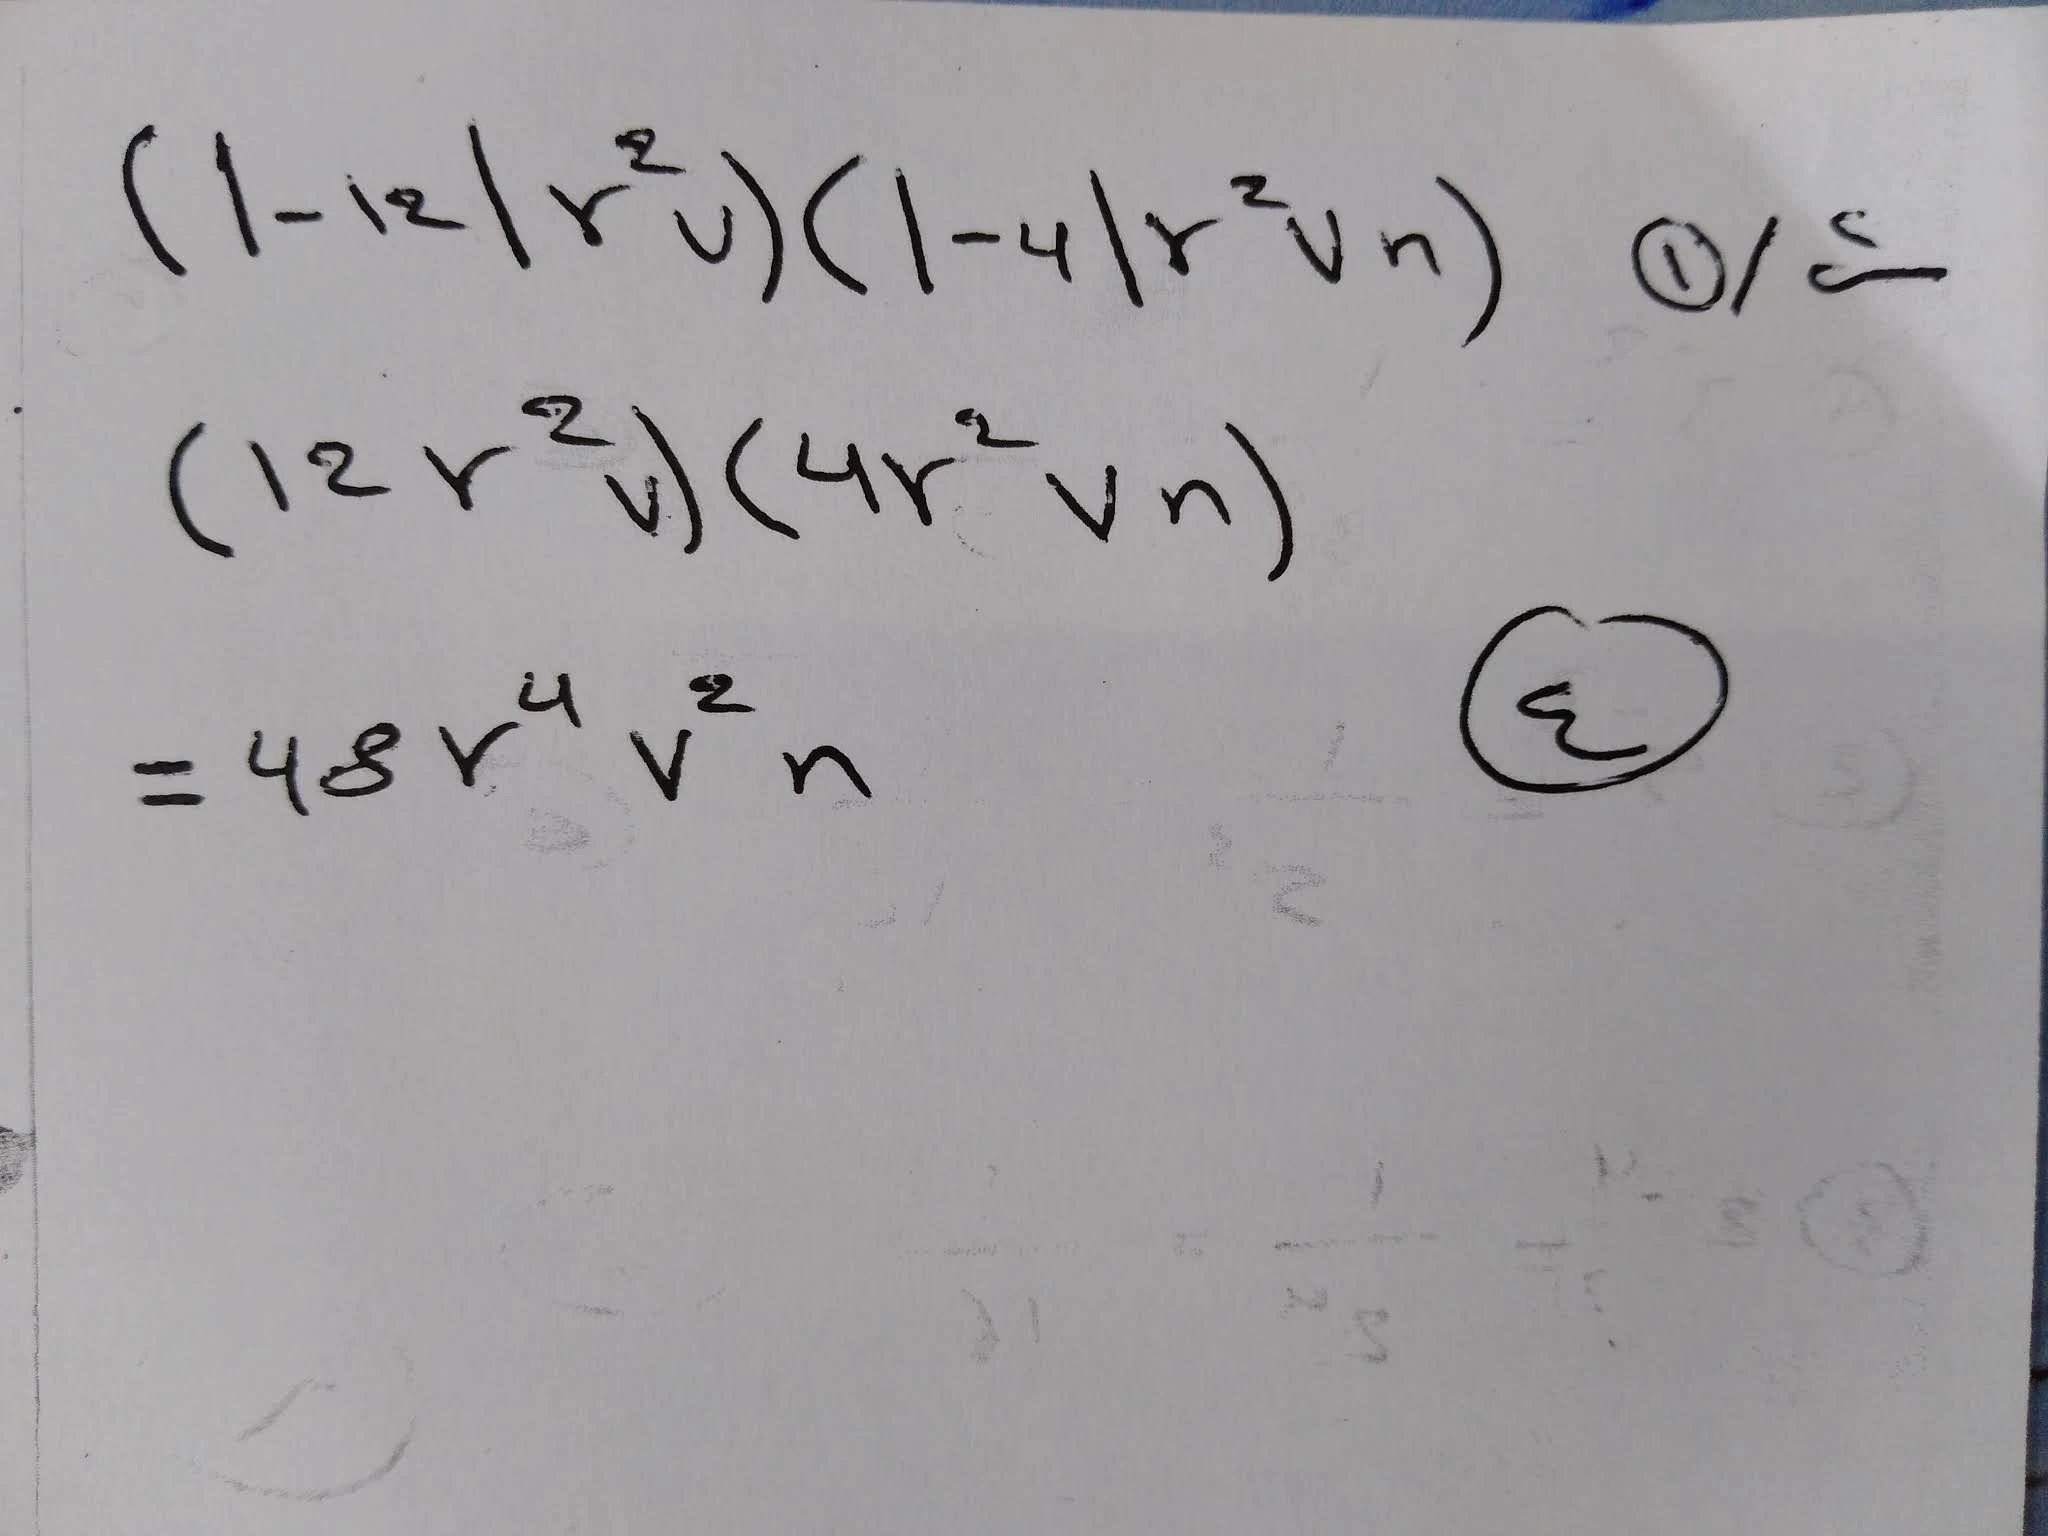 (|-12|r²v)(|-4|r²vn) ①/ ج
(12r²v)(4r²vn)
= 48r⁴v²n
٤